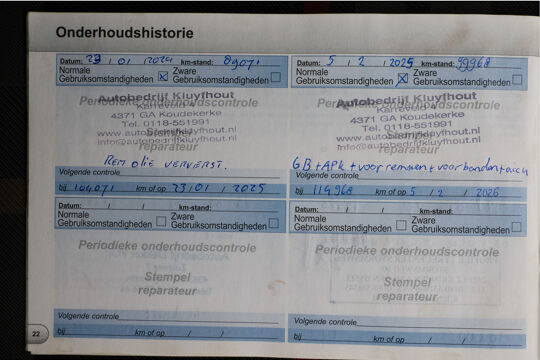 Onderhoudshistorie
Datum: 23 / 01 / 2024 km-stand: 89071
Normale Gebruiksomstandigheden Zware Gebruiksomstandigheden
Periodieke onderhoudscontrole
Autobedrijf Kluyfhout
Karreveld 4
4371 GA Koudekerke
Tel. 0118-551991
www.autobedrijfkluyfhout.nl
info@autobedrijfkluyfhout.nl
Stempel
reparateur
REM olie VERVERST.
Volgende controle
bij 104071 km of op 23 / 01 / 2025
Datum: 5 / 2 / 2025 km-stand: 99968
Normale Gebruiksomstandigheden Zware Gebruiksomstandigheden
Periodieke onderhoudscontrole
Autobedrijf Kluyfhout
Karreveld 4
4371 GA Koudekerke
Tel. 0118-551991
www.autobedrijfkluyfhout.nl
info@autobedrijfkluyfhout.nl
Stempel
reparateur
GB + APK + voorremmen + voorbanden + accu
Volgende controle
bij 114968 km of op 5 / 2 / 2026
Datum: / / km-stand:
Normale Gebruiksomstandigheden Zware Gebruiksomstandigheden
Periodieke onderhoudscontrole
Stempel
reparateur
Volgende controle
bij km of op / /
Datum: / / km-stand:
Normale Gebruiksomstandigheden Zware Gebruiksomstandigheden
Periodieke onderhoudscontrole
Stempel
reparateur
Volgende controle
bij km of op / /
22